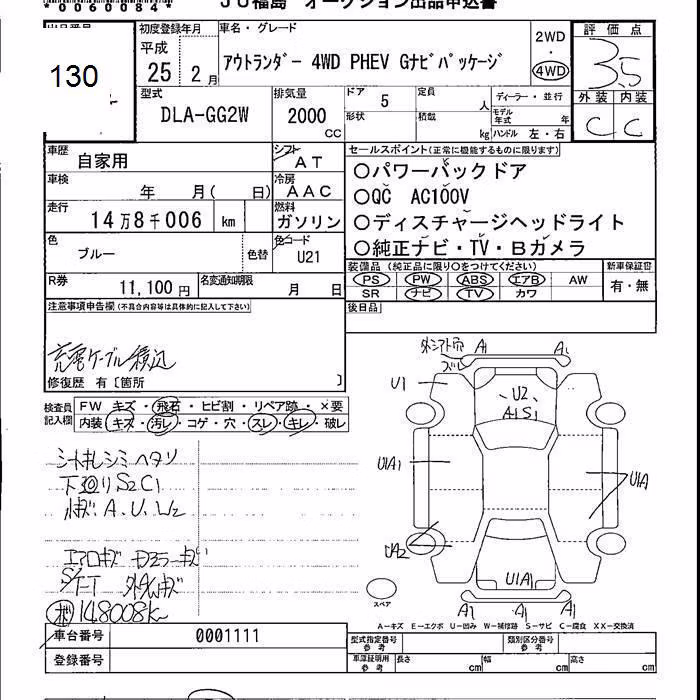 00060084
JU福島 オークション出品申込書
130
初度登録年月
平成
25 2月
車名・グレード
アウトランダー 4WD PHEV Gナビパッケージ
2WD
・
4WD
評価点
3.5
型式
DLA-GG2W
排気量
2000
CC
ドア 5
定員 人
ディーラー・並行
モデル年式 年
形状
積載 kg
ハンドル 左・右
外装 内装
C C
車歴 自家用
シフト AT
セールスポイント(正常に機能するものに限ります)
車検 年 月( 日)
冷房 AAC
○パワーバックドア
○QC AC100V
走行 14万8千006 km
燃料 ガソリン
○ディスチャージヘッドライト
○純正ナビ・TV・Bカメラ
色 ブルー 色替
色コード U21
装備品(純正品に限り○をつけてください)
新車保証書
PS PW ABS エアB AW
SR ナビ TV カワ
有・無
R券 11,100円
名変通知期限 月 日
注意事項申告欄(不具合内容等は具体的に記入して下さい)
後日品
充電ケーブル積込
修復歴 有〔箇所 〕
検査員記入欄
FW キズ・飛石・ヒビ割・リペア跡・×要
内装・キズ・汚レ・コゲ・穴・スレ・キレ・破レ
A1 A1
U1
U2
A1S1
シートキレシミヘタリ
下回りS2C1
小キズ.A.U.W2
U1A1
U1A
UA2
エアロキズ
S/T-T
148008k
U1A1
A1 A1
スペア
A-キズ E-エクボ U-凹み W-補修跡 S-サビ C-腐食 XX-交換済
車台番号 0001111
型式指定番号 参考
類別区分番号 参考
登録番号
車庫証明用 参考
長さ cm
幅 cm
高さ cm